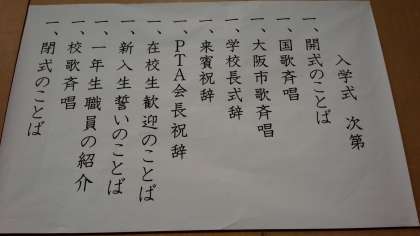 入学式 次第
一、開式のことば
一、国歌斉唱
一、大阪市歌斉唱
一、学校長式辞
一、来賓祝辞
一、PTA会長祝辞
一、在校生歓迎のことば
一、新入生誓いのことば
一、一年生職員の紹介
一、校歌斉唱
一、閉式のことば